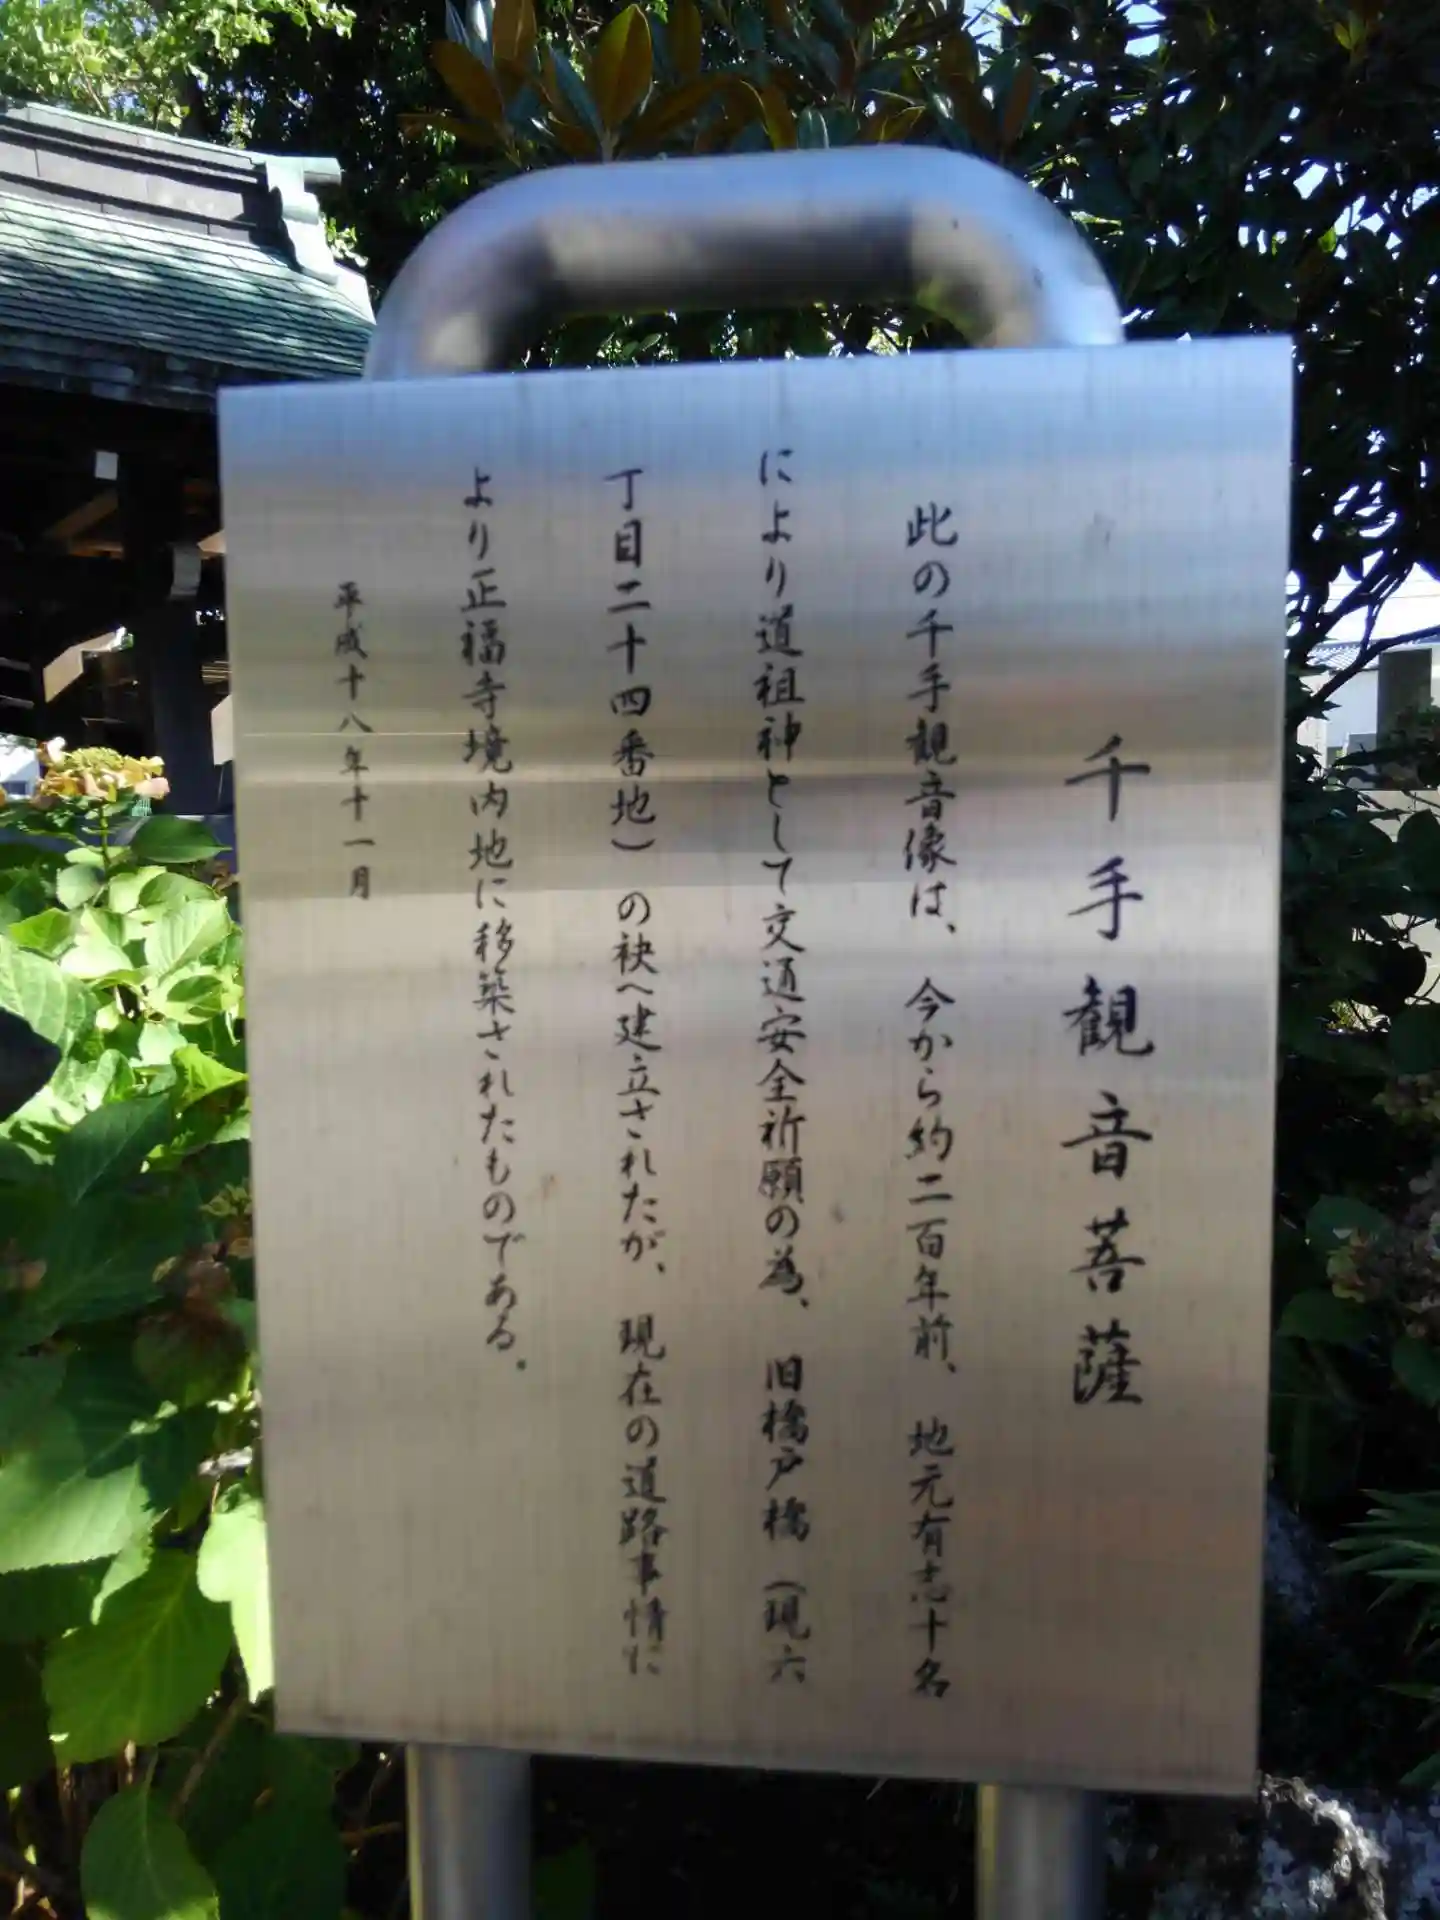 千手観音菩薩
此の千手観音像は、今から約二百年前、地元有志十名
により道祖神として交通安全祈願の為、旧橋戸橋（現六
丁目二十四番地）の袂へ建立されたが、現在の道路事情に
より正福寺境内地に移築されたものである。
平成十八年十一月